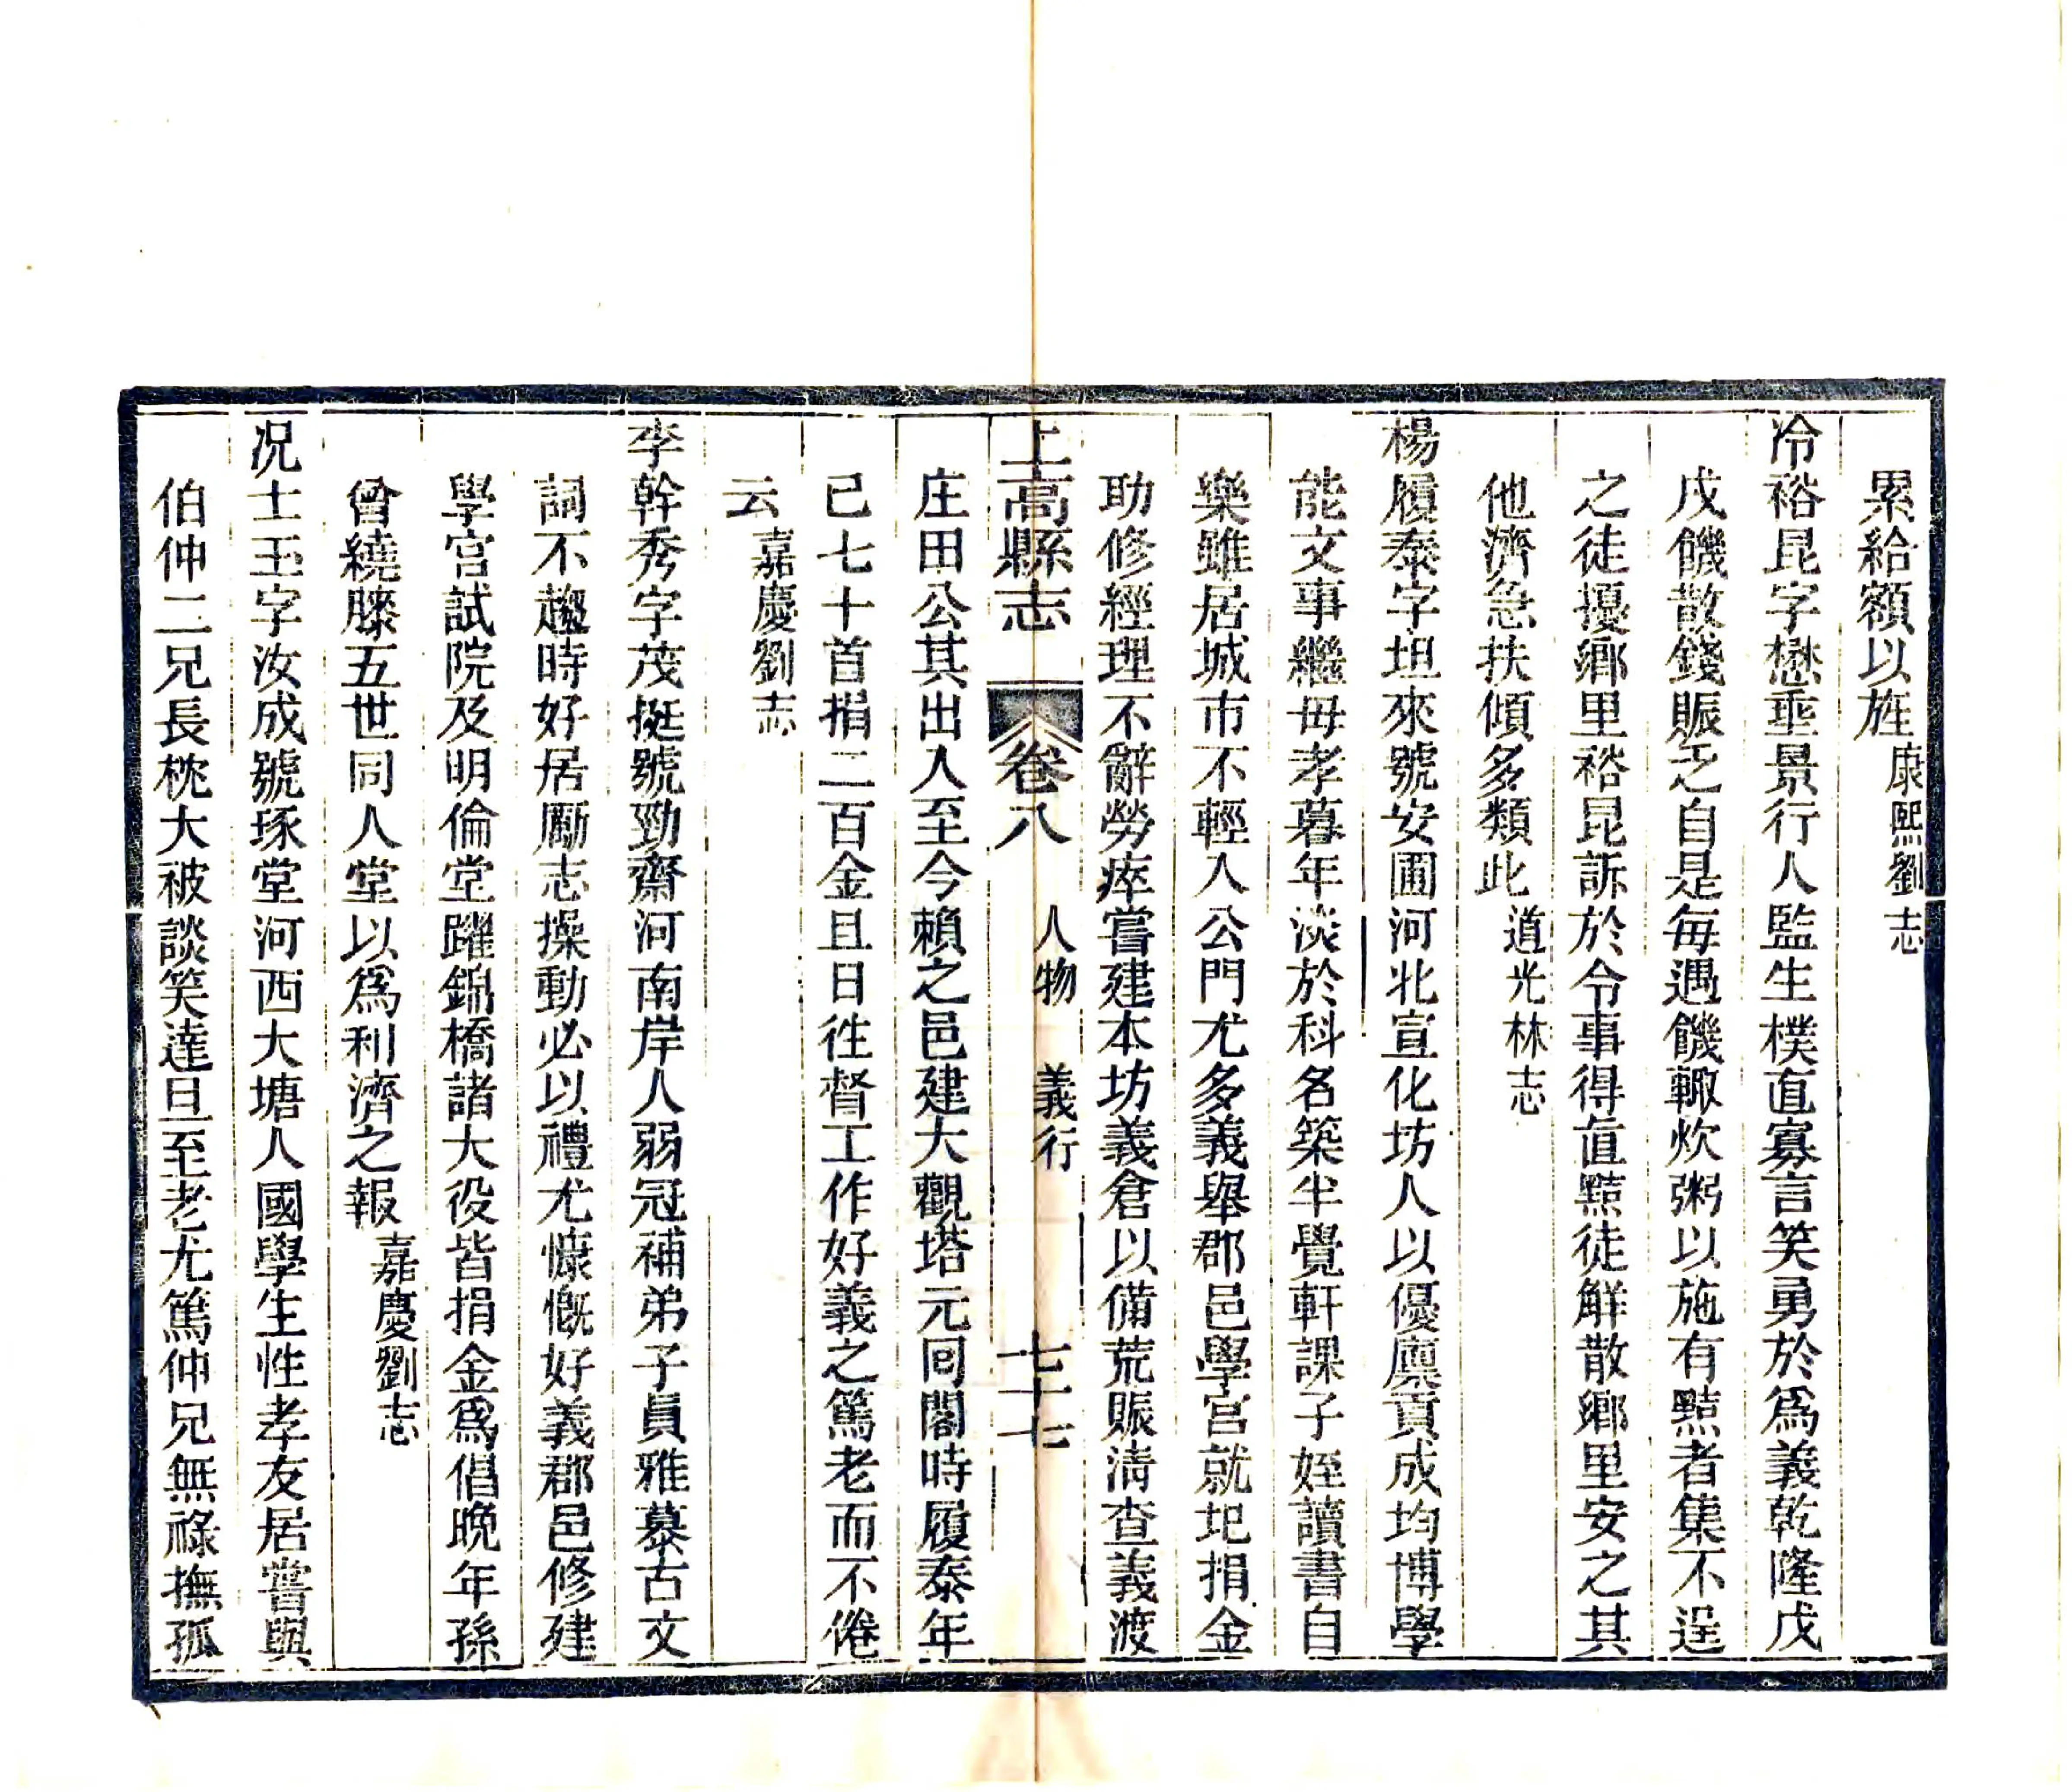 累給額以旌康熙劉志
冷裕昆字懋垂景行人監生樸直寡言笑勇於爲義乾隆戊
戌饑散錢賑乏自是每遇饑輙炊粥以施有黠者集不逞
之徒擾鄉里裕昆訴於令事得直黠徒解散鄉里安之其
他濟急扶傾多類此道光林志
楊履泰字坦來號安圃河北宣化坊人以優廩貢成均博學
能文事繼母孝暮年淡於科名築半覺軒課子姪讀書自
樂雖居城市不輕入公門尤多義舉郡邑學宮就圮捐金
助修經理不辭勞瘁嘗建本坊義倉以備荒賑淸查義渡
上高縣志 卷八 人物 義行 七十七
庄田公其出入至今賴之邑建大觀塔元囘閣時履泰年
已七十首捐二百金且日徃督工作好義之篤老而不倦
云嘉慶劉志
李幹秀字茂挺號勁齋河南岸人弱冠補弟子員雅慕古文
詞不趨時好居勵志操動必以禮尤慷慨好義郡邑修建
學宮試院及明倫堂躍錦橋諸大役皆捐金爲倡晚年孫
曾繞膝五世同人堂以爲利濟之報嘉慶劉志
况士玉字汝成號琢堂河西大塘人國學生性孝友居嘗與
伯仲二兄長枕大被談笑達旦至老尤篤仲兄無祿撫孤